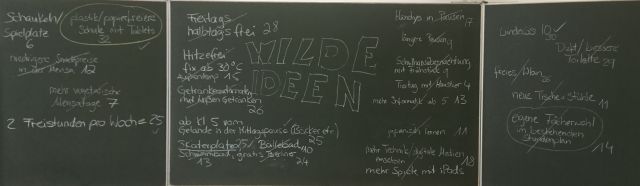 Schaukeln/
Spielplatz
6
plastik/papierfreiere
Schule mit Tablets
32
niedrigere Snackpreise
in der Mensa 12
mehr vegetarische
Mensatage 7
2 Freistunden pro Woche 25
Freitags
halbtags frei 28
Hitzefrei
fix ab 30°C
Getränkeautomaten
mit süßen Getränken
26
ab Kl. 5 vorm
Gelände in der Mittagspause (Bäcker etc)
25
Skaterplatz 5 Bällebad 10
Schwimmbad, gratis Berliner
13 24
WILDE
IDEEN
Handys in Pausen 17
längere Pausen 9
Schulhausübernachtung
mit Frühstück 9
mehr Informatik ab 5 13
japanisch lernen 11
mehr Technik/digitale Medien
einsetzen 18
mehr Spiele mit iPads
windows 10
20
Duft/bessere
Toilette 29
freies Wlan
26
neue Tische + Stühle 11
eigene Fächerwahl
im bestehenden
Stundenplan
14